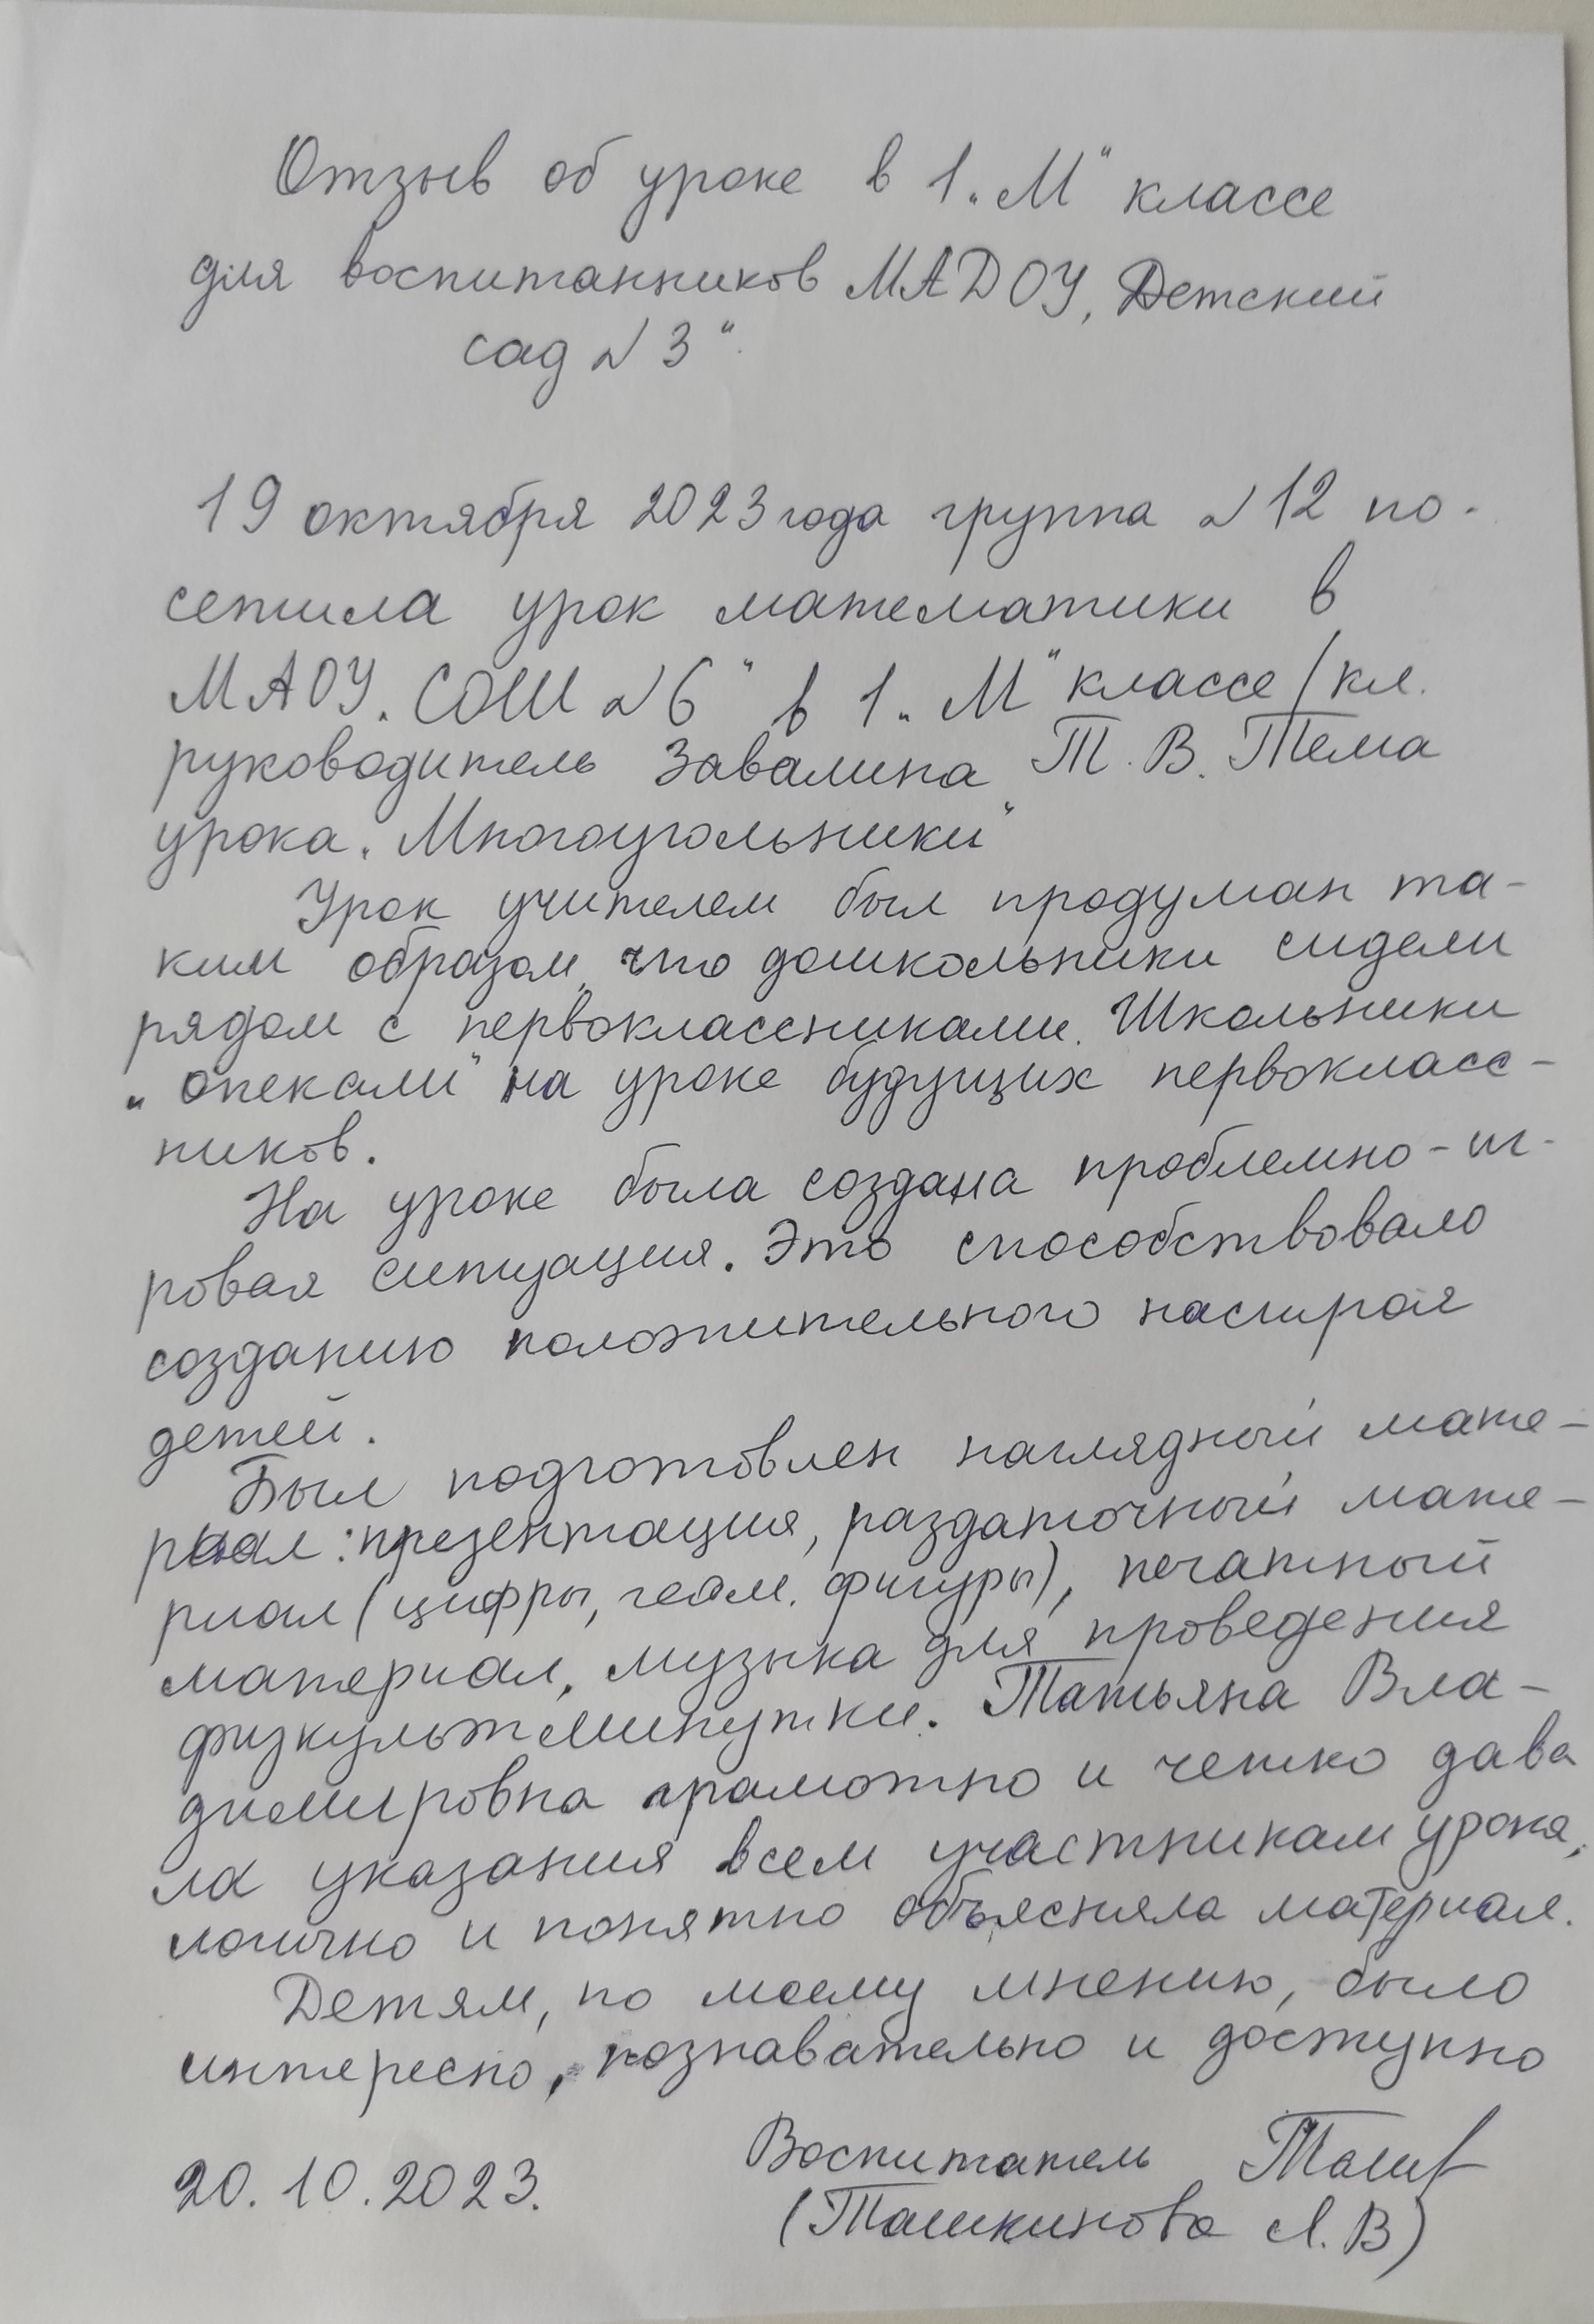 Отзыв об уроке в 1 „М“ классе
для воспитанников МАДОУ „Детский
сад №3“.
19 октября 2023 года группа №12 по-
сетила урок математики в
МАОУ „СОШ №6“ в 1 „М“ классе /кл.
руководитель Завалина Т. В. Тема
урока „Многоугольники“
Урок учителем был продуман та-
ким образом, что дошкольники сидели
рядом с первоклассниками. Школьники
„опекали“ на уроке будущих первокласс-
ников.
На уроке была создана проблемно-иг-
ровая ситуация. Это способствовало
созданию положительного настроя
детей.
Был подготовлен наглядный мате-
риал: презентация, раздаточный мате-
риал (цифры, геом. фигуры), печатный
материал, музыка для проведения
физкультминутки. Татьяна Вла-
димировна грамотно и четко дава
ла указания всем участникам урока,
логично и понятно объясняла материал.
Детям, по моему мнению, было
интересно, познавательно и доступно
20.10.2023.
Воспитатель Таш
(Ташкинова Л.В)